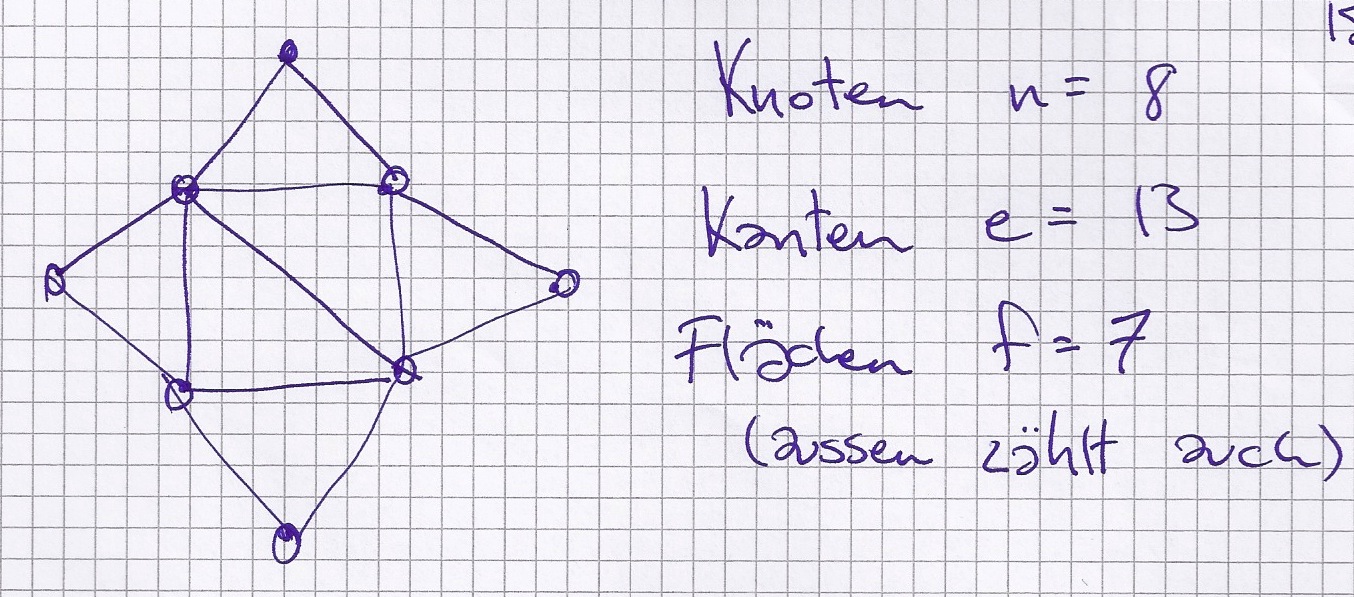 Knoten n = 8
Kanten e = 13
Flächen f = 7
(aussen zählt auch)